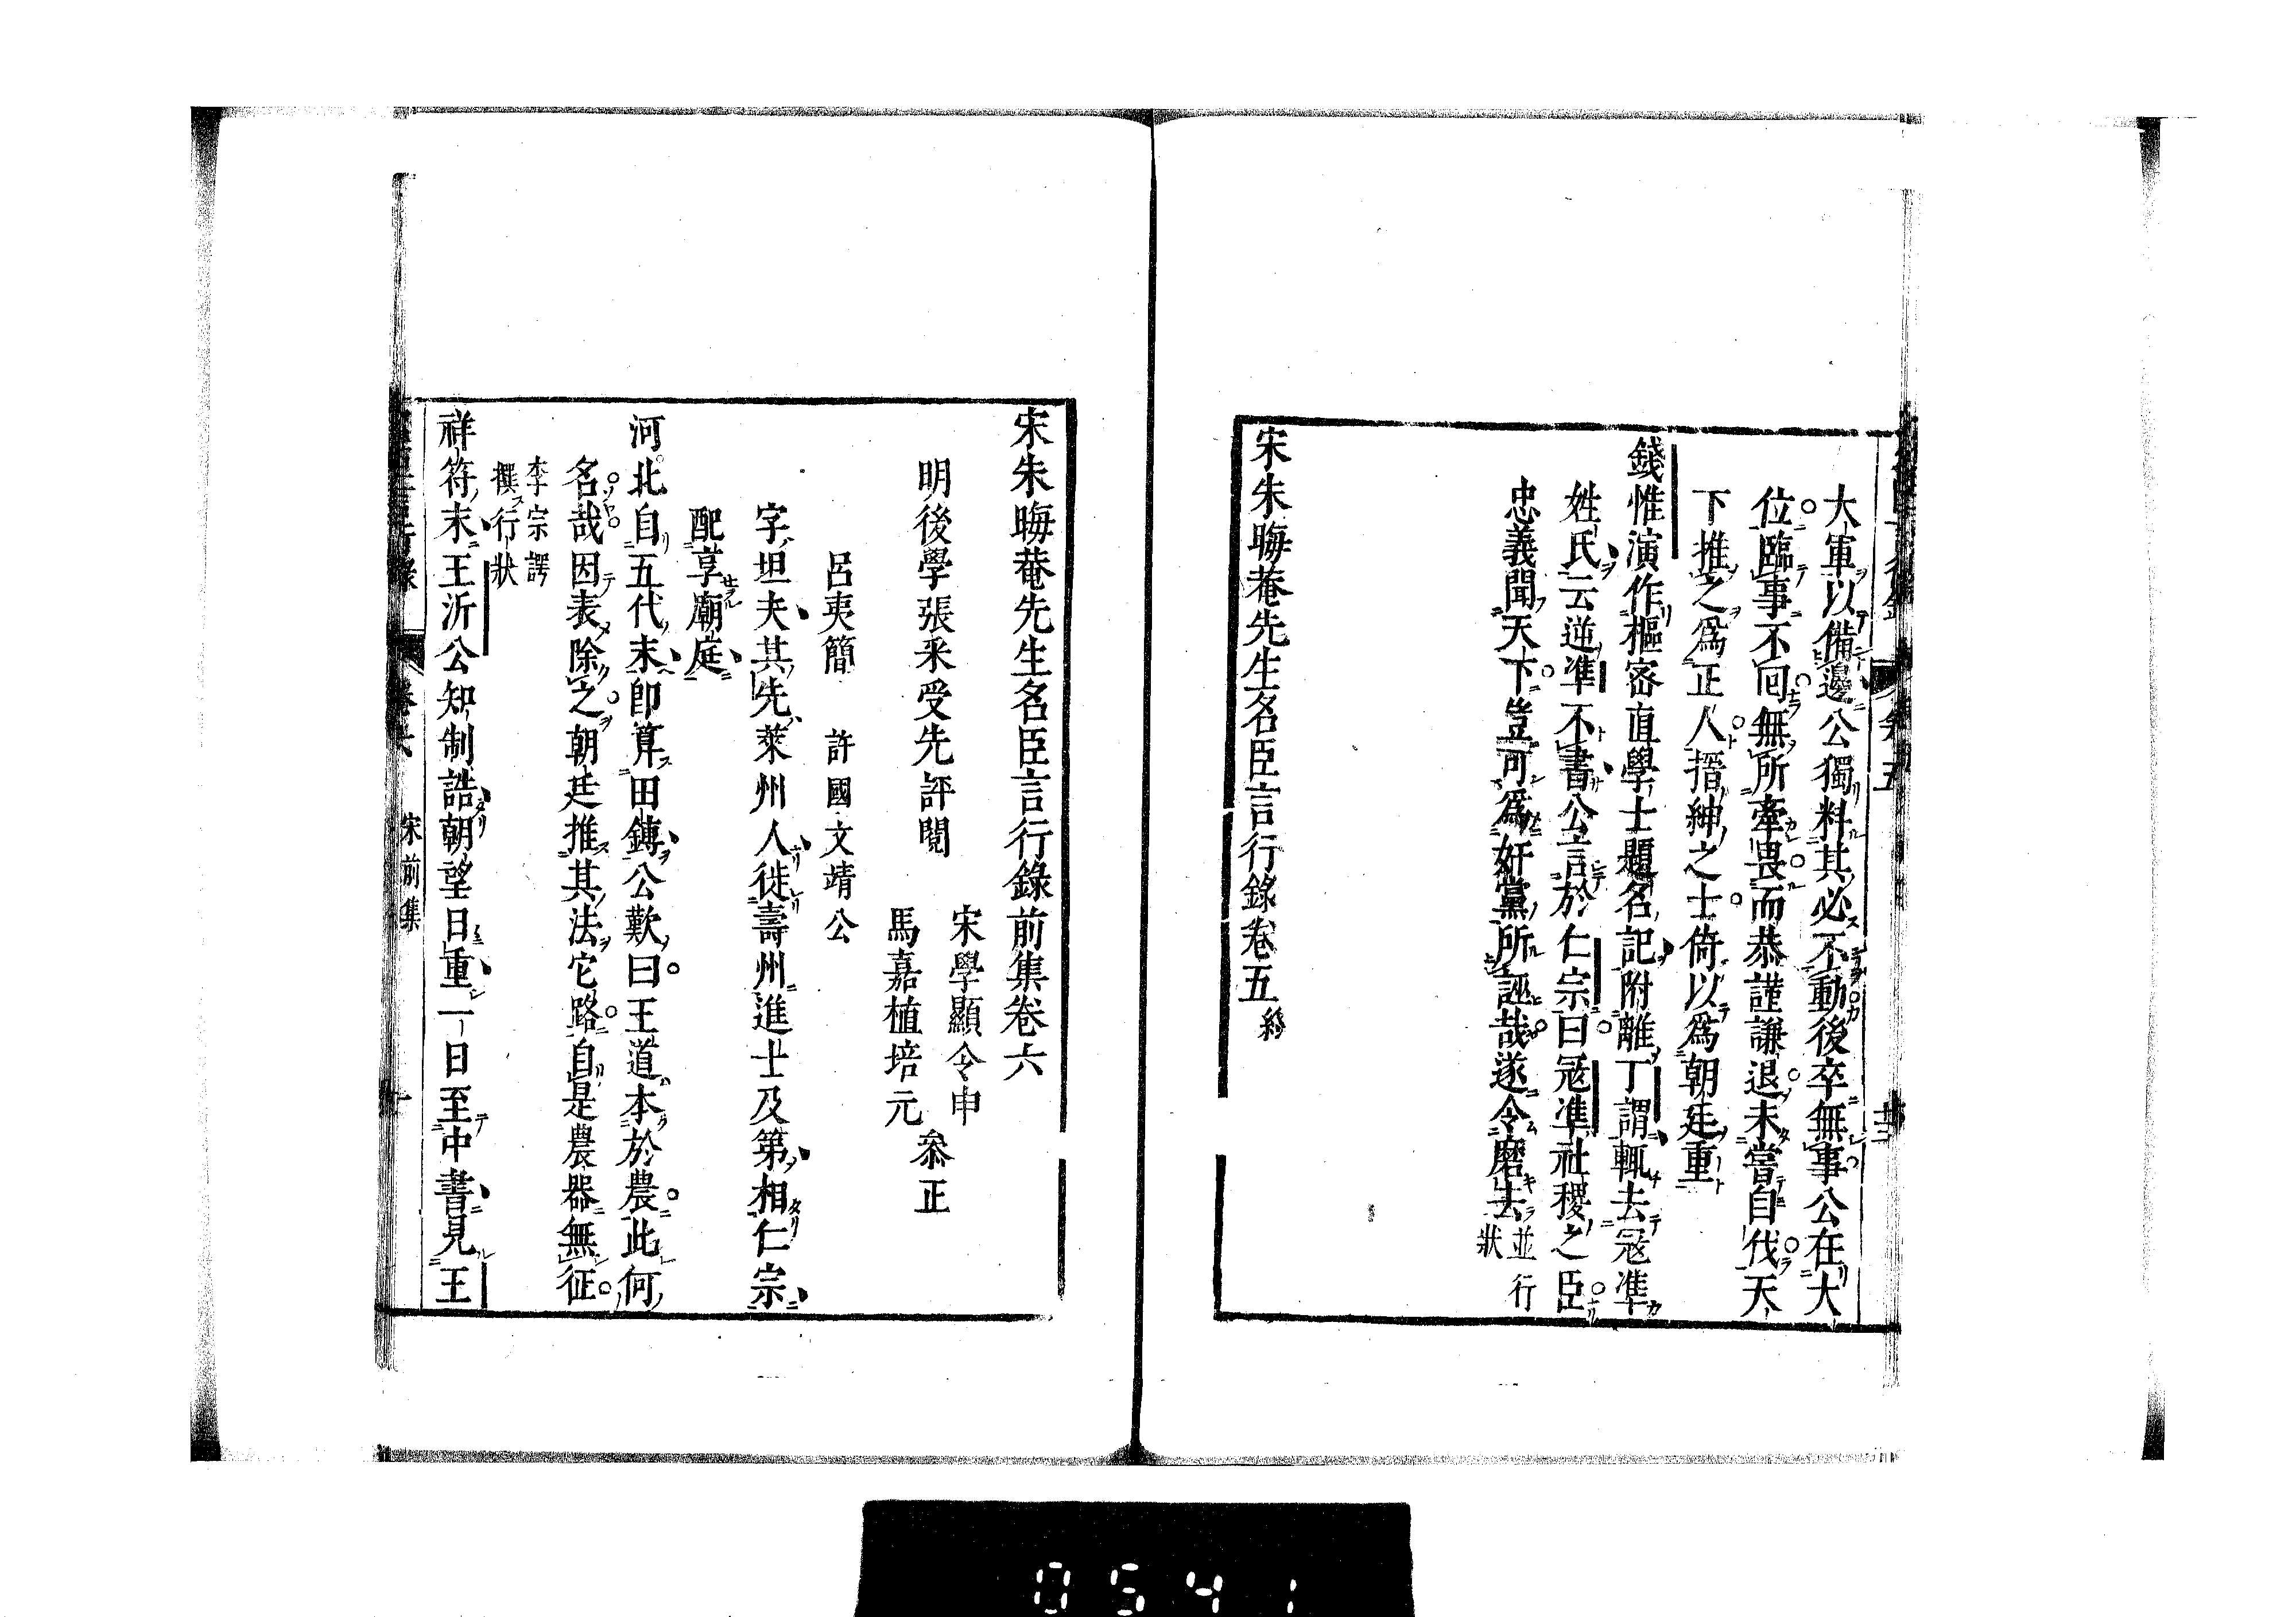 大軍以備邊公獨料其必不動後卒無事公在大
位臨事不回無所牽畏而恭謹謙退未嘗自伐天
下推之爲正人搢紳之士倚以爲朝廷重
錢惟演作樞密直學士題名記附離丁謂輒去冦準
姓氏云逆準不書公言於仁宗曰冦準社稷之臣
忠義聞天下豈可爲奸黨所誣哉遂令磨去並行狀
宋朱晦菴先生名臣言行錄卷五終
宋朱晦菴先生名臣言行錄前集卷六
明後學張采受先評閱
宋學顯令申
馬嘉植培元
叅正
呂夷簡 許國文靖公
字坦夫其先萊州人徙壽州進士及第相仁宗
配享廟庭
河北自五代末卽算田鏄公歎曰王道本於農此何
名哉因表除之朝廷推其法它路自是農器無征
李宗諤
撰行狀
祥符末王沂公知制誥朝望日重一日至中書見王
卷六 宋前集
0541